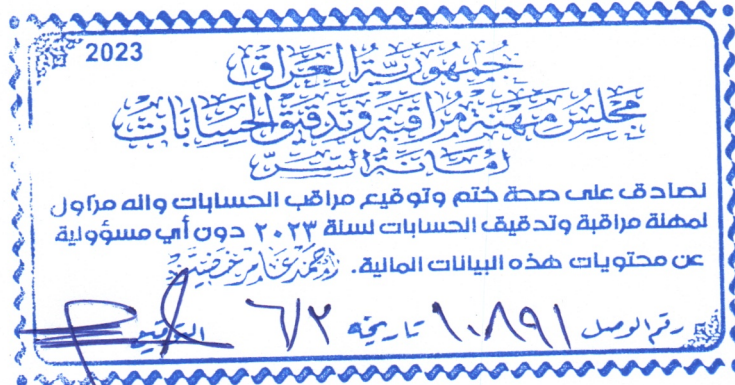 2023
جمهورية العراق
مجلس مهنة مراقبة وتدقيق الحسابات
أمانة السر
نصادق على صحة ختم وتوقيع مراقب الحسابات وانه مزاول
لمهنة مراقبة وتدقيق الحسابات لسنة ٢٠٢٣ دون أي مسؤولية
عن محتويات هذه البيانات المالية. احمد عامر
رقم الوصل ١٠٨٩١ تاريخه ٦/٢ التوقيع